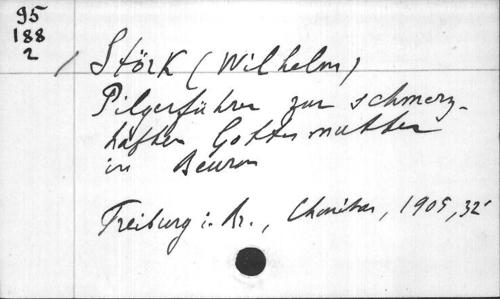 95
188
2
Störk (Wilhelm)
Pilgerführer zur schmerz-
haften Gottesmutter
in Beuron
Freiburg i. Br., Charitas, 1905, 32°